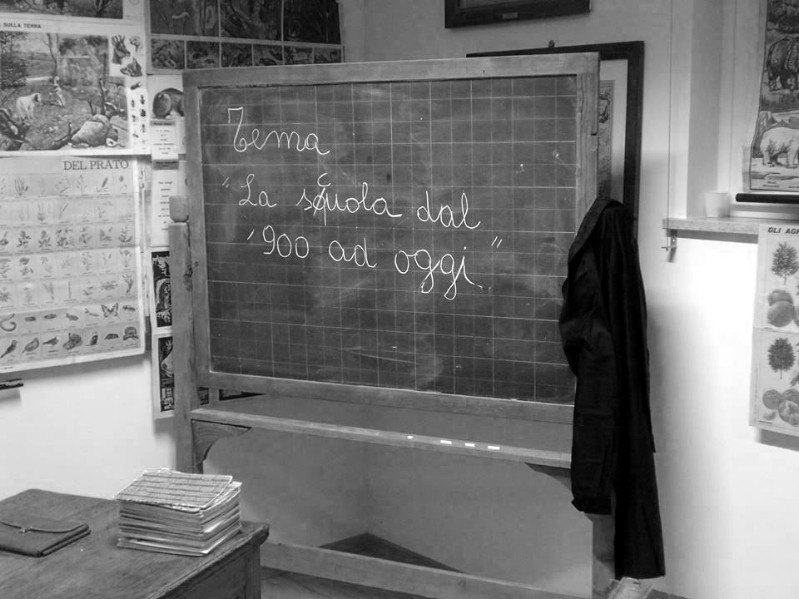 SULLA TERRA
DEL PRATO
Tema
"La scuola dal
'900 ad oggi"
GLI